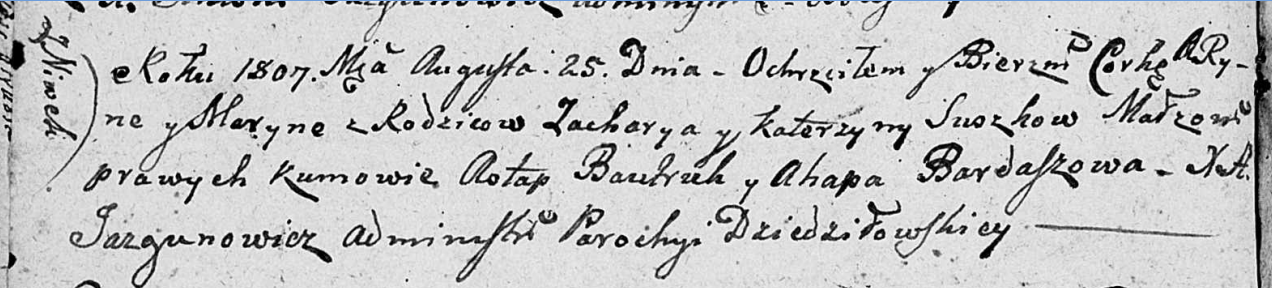 z Niwek
Roku 1807. Mca Augusta. 25. Dnia - Ochrzciłem y Bierzm Corkę ARy-
ne y Maryne z Rodzicow Zacharya y Katerzyny Suszkow Małzow
prawych Kumowie Astap Bautruk y Ahapa Bardaszowa - X. A.
Jazgunowicz Administr Parochyi Dziedziłowskiey